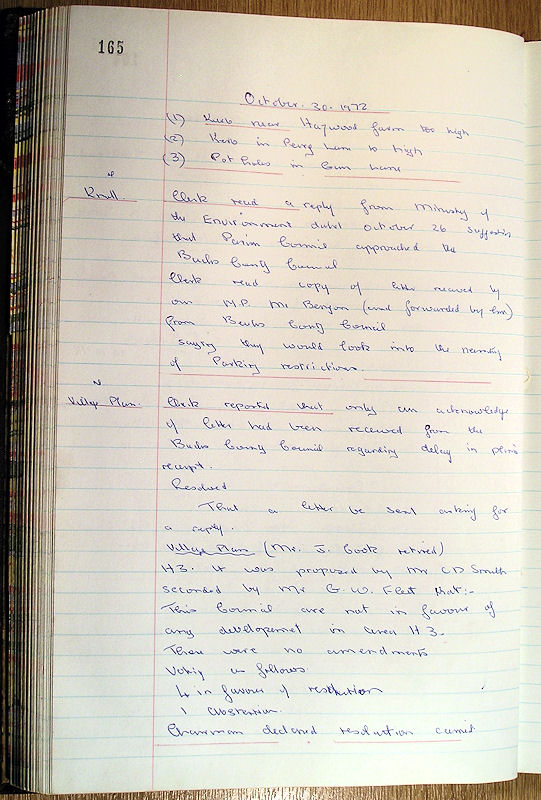 165
October. 30. 1972
(1) Kerb near Haywood farm too high
(2) Kerb in Perry Lane to high
(3) Pot holes in Gum Lane
Knoll. Clerk read a reply from Ministry of
the Environment dated October 26 suggestin
that Parish Council approached the
Bucks County Council
Clerk read copy of letter received by
our M.P. Mr Benyon (and forwarded by him)
from Bucks County Council
saying they would look into the
of Parking restrictions.
Village Plan. Clerk reported that only an acknowledge
of letter had been received from the
Bucks County Council regarding delay in plans
receipt.
Resolved
That a letter be sent asking for
a reply.
Village Plan (Mr. J. Cook retired)
H3. It was proposed by Mr C D Smith
seconded by Mr G. W. Fleet that:-
This Council are not in favour of
any developement in area H3.
There were no amendments
Voting as follows
4 in favour of resolution
1 abstention.
Chairman declared resolution carried